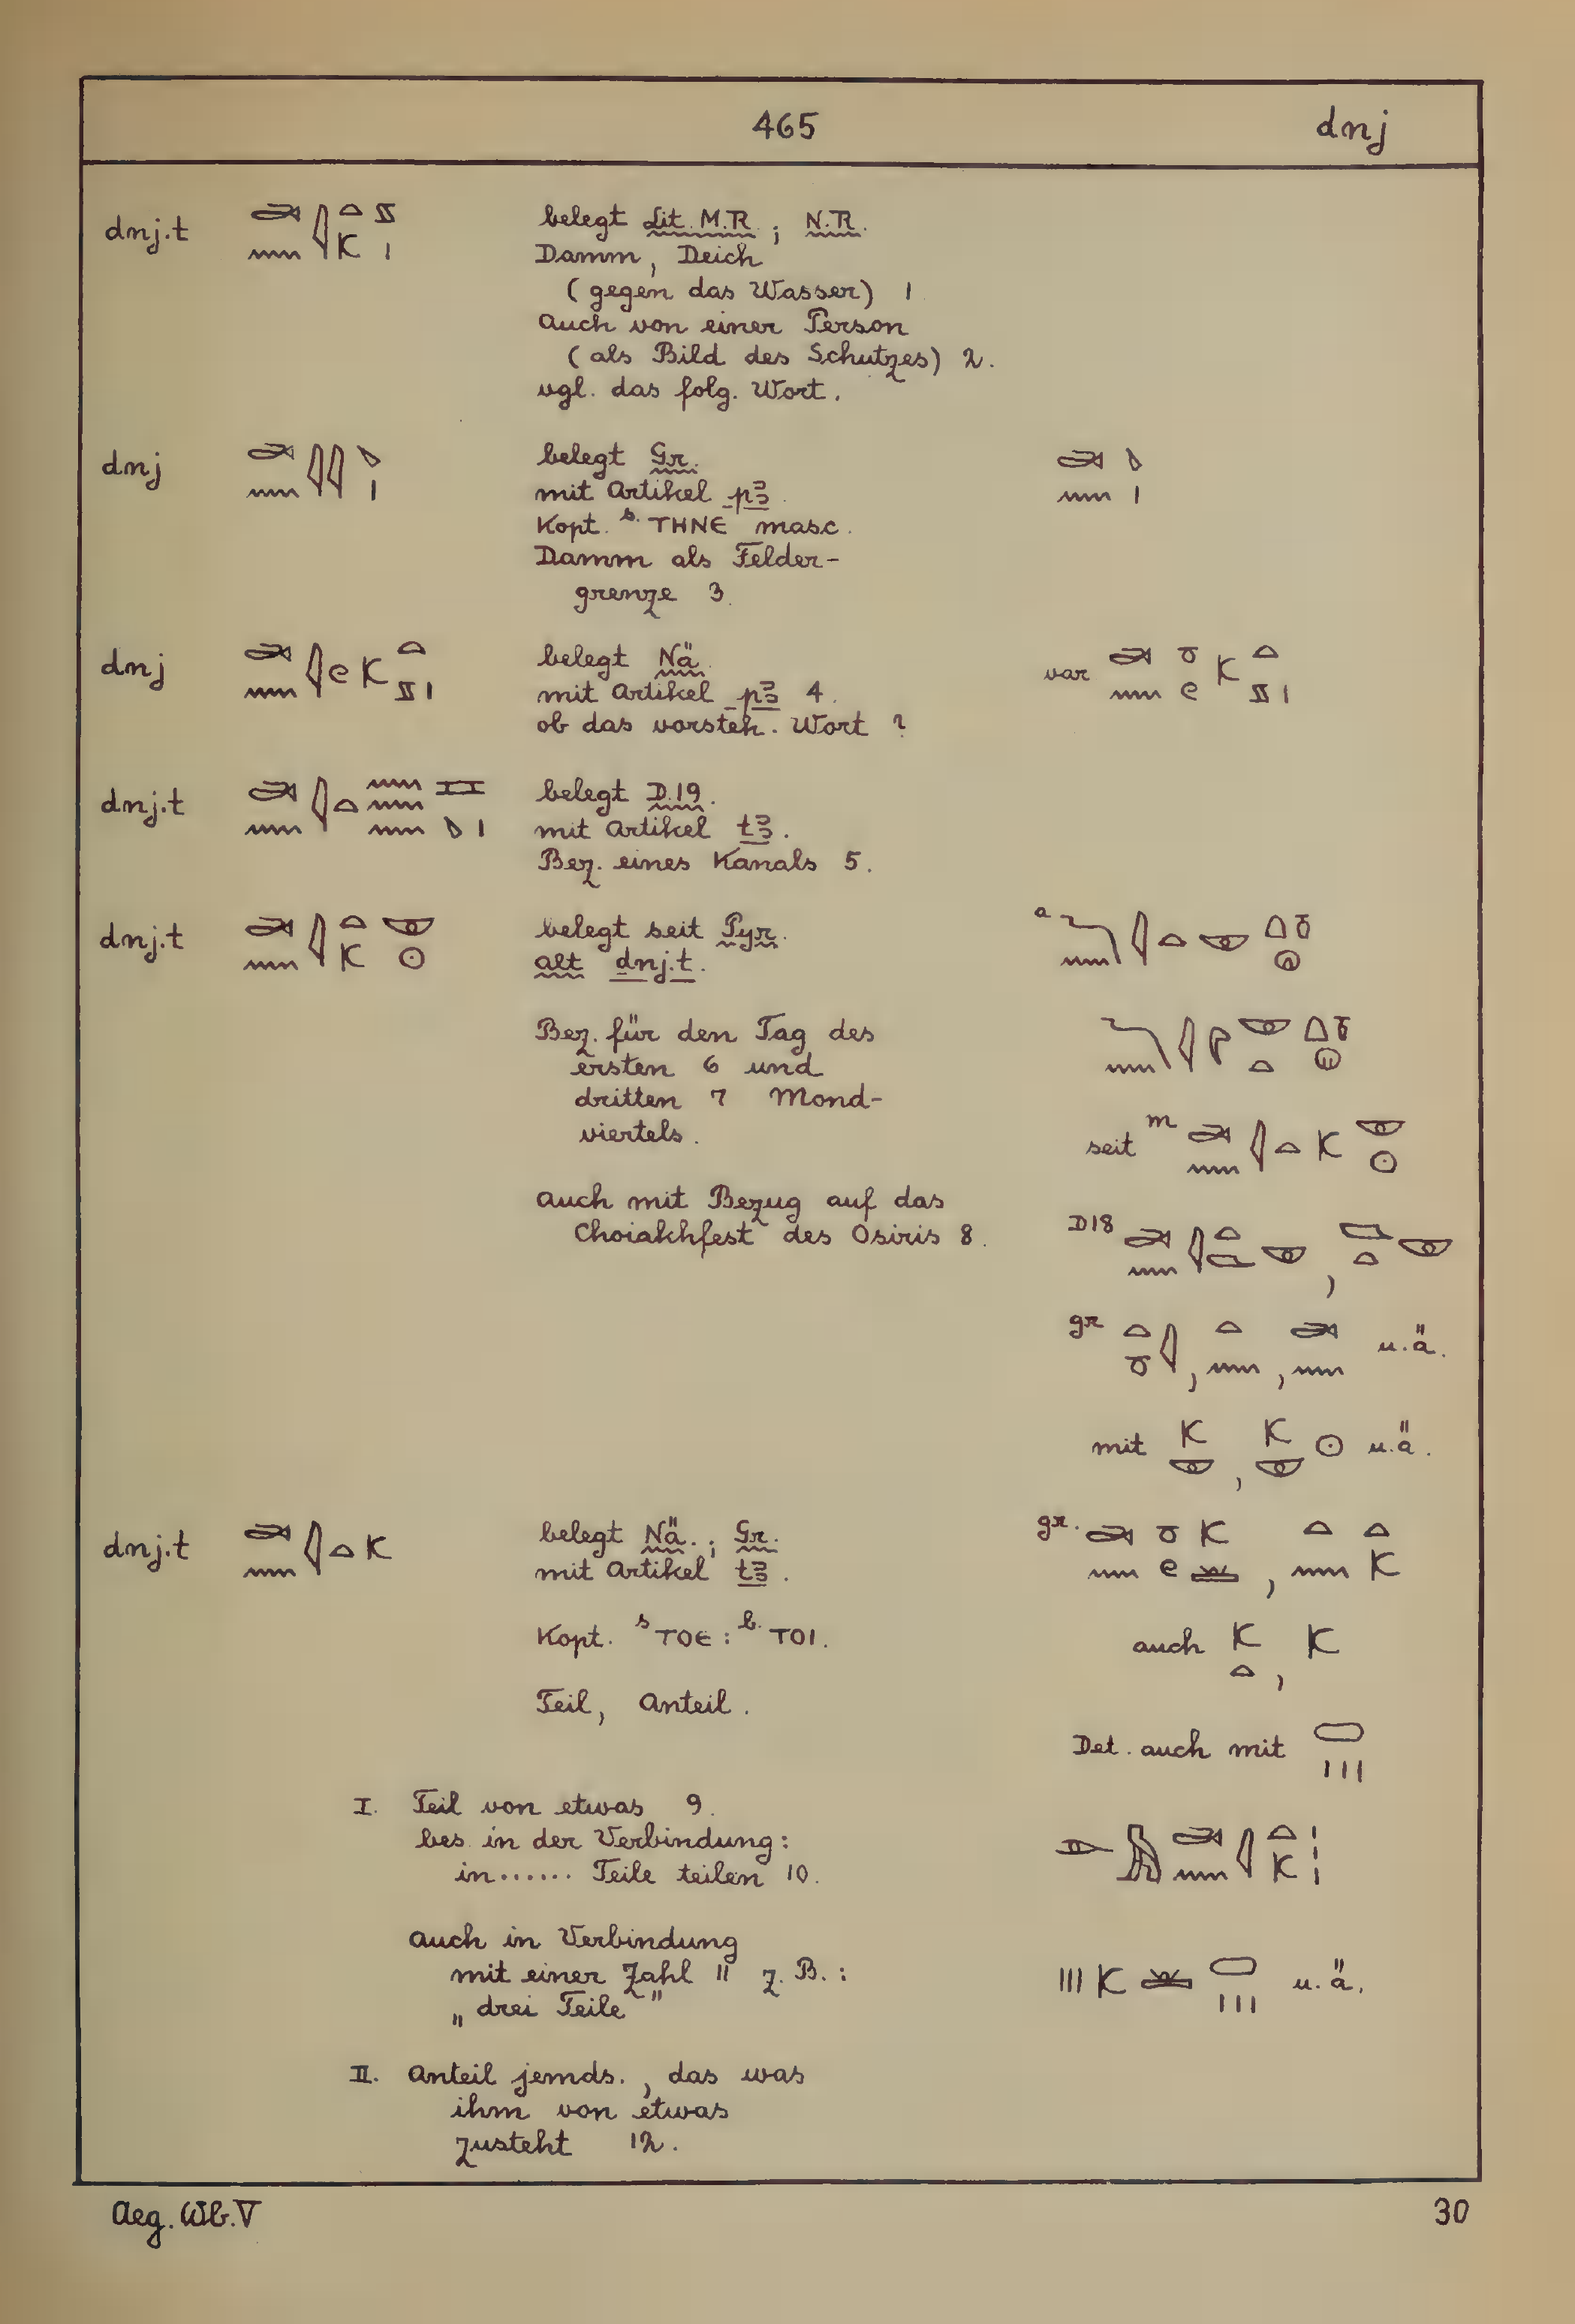 465 dnj
dnj.t belegt Lit. M.R.; N.R.
Damm, Deich
(gegen das Wasser) 1
Auch von einer Person
(als Bild des Schutzes) 2.
vgl. das folg. Wort.
dnj belegt Gr.
mit Artikel pꜣ.
Kopt. s. ⲦⲎⲚⲈ masc.
Damm als Felder-
grenze 3.
dnj belegt Nä. var
mit Artikel pꜣ 4.
ob das vorsteh. Wort?
dnj.t belegt D.19.
mit Artikel tꜣ.
Bez. eines Kanals 5.
dnj.t belegt seit Pyr. a
alt ḏnj.t.
Bez. für den Tag des
ersten 6 und
dritten 7 Mond-
viertels.
seit m
auch mit Bezug auf das
Choiakhfest des Osiris 8.
D18
gr , , u.ä.
mit , u.ä.
dnj.t belegt Nä.; Gr. gr. ,
mit Artikel tꜣ.
Kopt. s ⲦⲞⲈ: b. ⲦⲞⲒ. auch ,
Teil, Anteil.
Det. auch mit
I. Teil von etwas 9.
bes. in der Verbindung:
in...... Teile teilen 10.
auch in Verbindung
mit einer Zahl 11 z. B.: u.ä.
„drei Teile"
II. Anteil jemds., das was
ihm von etwas
zusteht 12.
Aeg. Wb. V 30